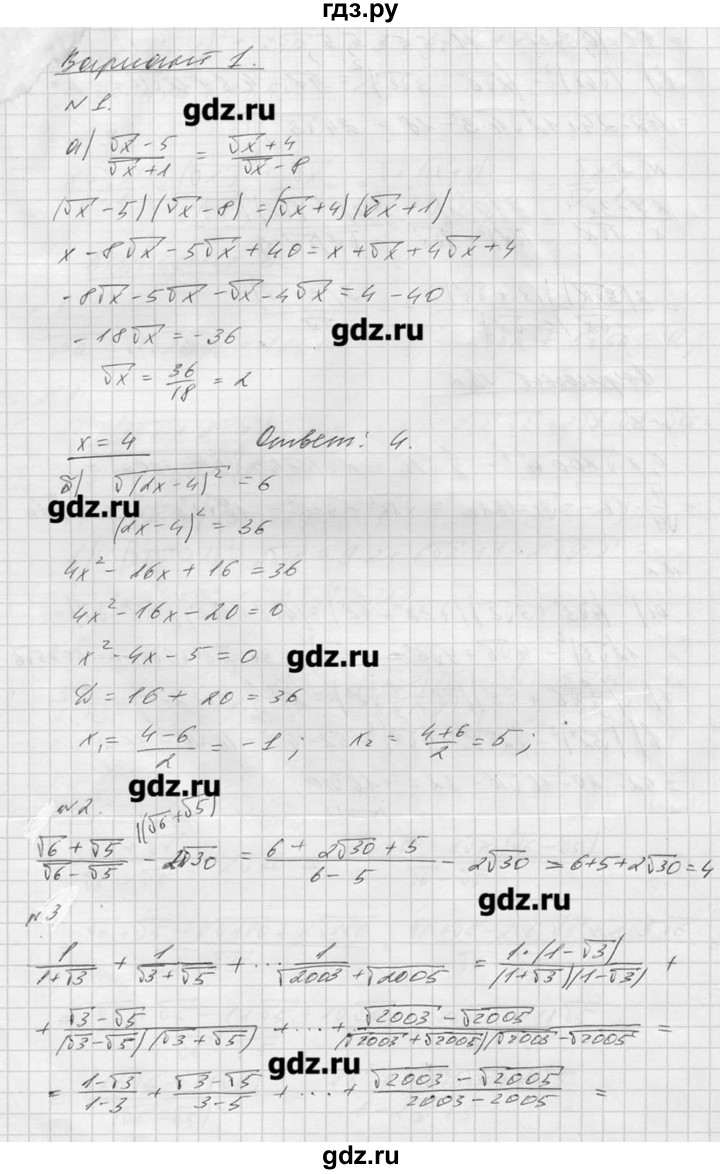 гдз.ру
Вариант 1.
№1.
gdz.ru
а) (√x - 5)/(√x + 1) = (√x + 4)/(√x - 8)
(√x - 5)(√x - 8) = (√x + 4)(√x + 1)
x - 8√x - 5√x + 40 = x + √x + 4√x + 4
- 8√x - 5√x - √x - 4√x = 4 - 40
- 18√x = - 36
gdz.ru
√x = 36/18 = 2
x = 4 Ответ: 4.
б) √(2x - 4)² = 6
gdz.ru
(2x - 4)² = 36
4x² - 16x + 16 = 36
4x² - 16x - 20 = 0
x² - 4x - 5 = 0
gdz.ru
D = 16 + 20 = 36
x₁ = (4 - 6)/2 = -1; x₂ = (4 + 6)/2 = 5;
gdz.ru
№2.
(√6 + √5)/(√6 - √5) |(√6 + √5) - 2√30 = (6 + 2√30 + 5)/(6 - 5) - 2√30 = 6+5+2√30 = 4
gdz.ru
№3
1/(1+√3) + 1/(√3+√5) + ... 1/(√2003+√2005) = 1·(1-√3)/((1+√3)(1-√3)) +
+ (√3-√5)/((√3-√5)(√3+√5)) + ... + (√2003-√2005)/((√2003+√2005)(√2003-√2005)) =
gdz.ru
= (1-√3)/(1-3) + (√3-√5)/(3-5) + ... + (√2003-√2005)/(2003-2005) =
gdz.ru